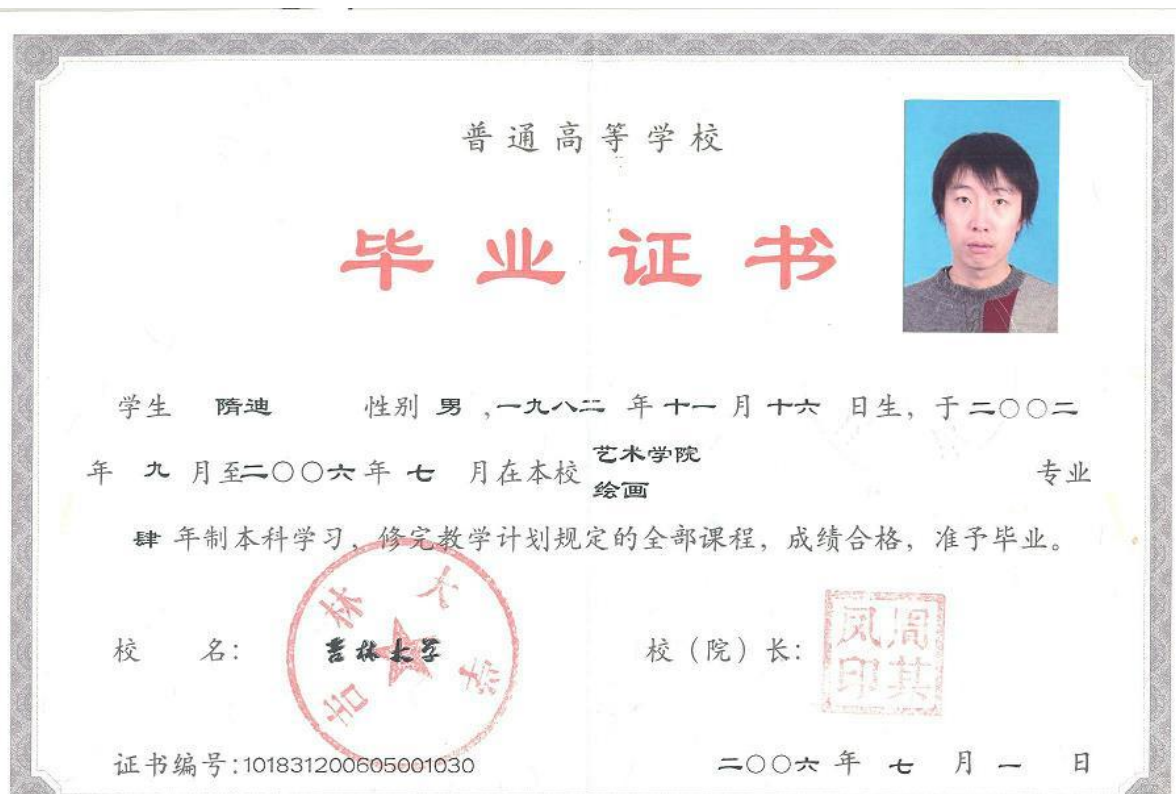 普通高等学校
毕业证书
学生 隋迪 性别 男 ,一九八二 年 十一 月 十六 日生, 于 二〇〇二
年 九 月至 二〇〇六 年 七 月在本校 艺术学院 绘画 专业
肆 年制本科学习, 修完教学计划规定的全部课程, 成绩合格, 准予毕业。
校 名: 吉林大学
吉林大学
校(院)长:
周其凤印
证书编号:101831200605001030
二〇〇六 年 七 月 一 日